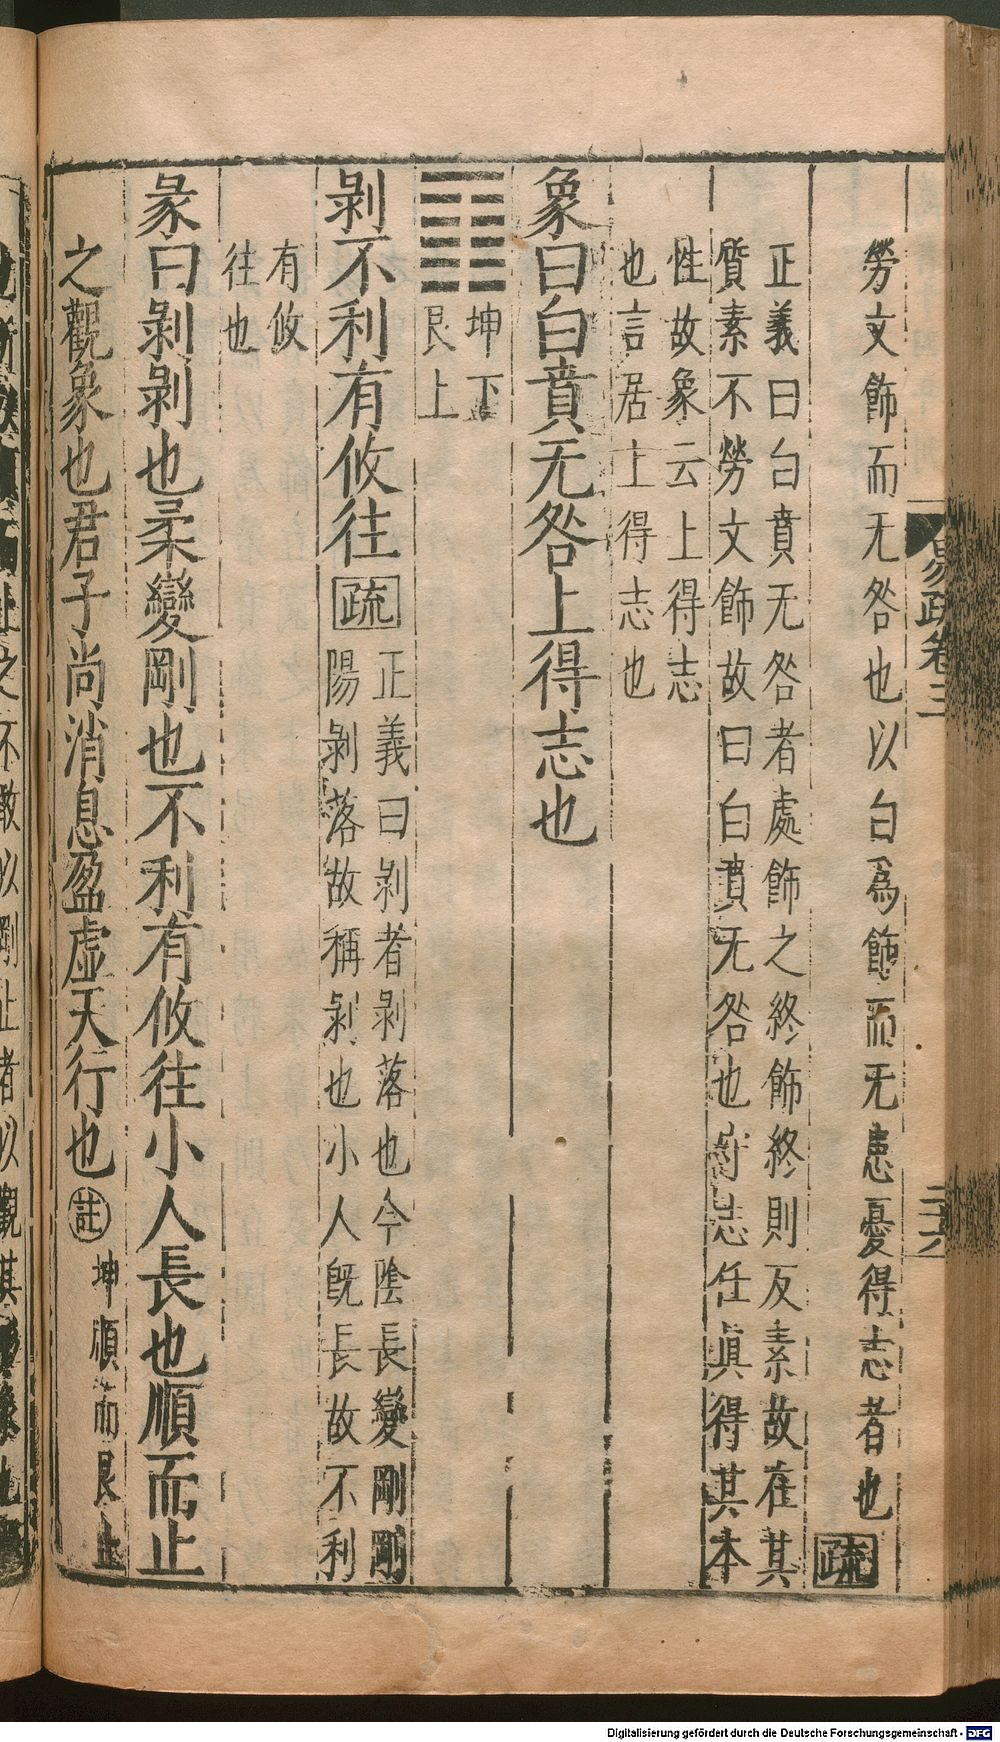 易疏卷三
二六
勞文飾而无咎也以白爲飾而无患憂得志者也疏
正義曰白賁无咎者處飾之終飾終則反素故在其
質素不勞文飾故曰白賁无咎也守志任眞得其本
性故象云上得志
也言居上得志也
象曰白賁无咎上得志也
坤下
艮上
剝不利有攸往疏
正義曰剝者剝落也今陰長變剛剛
陽剝落故稱剝也小人旣長故不利
有攸
往也
彖曰剝剝也柔變剛也不利有攸往小人長也順而止
之觀象也君子尚消息盈虛天行也註
坤順而艮止
之不敢以剛止者以觀其
Digitalisierung gefördert durch die Deutsche Forschungsgemeinschaft - DFG